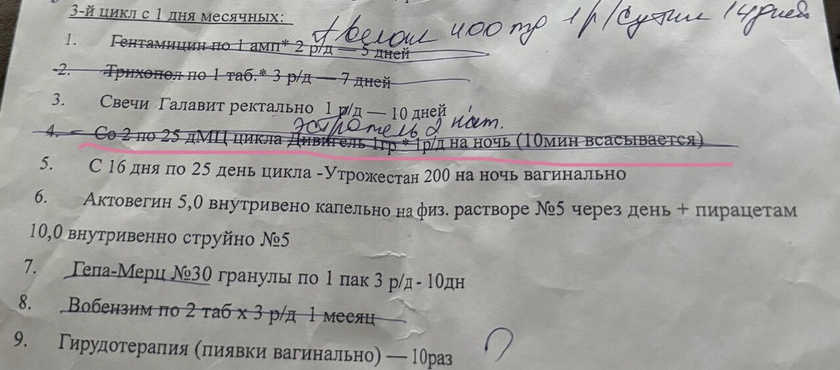 3-й цикл с 1 дня месячных:
Авелокс 400 mg 1 р/сутки 14 дней
1. Гентамицин по 1 амп* 2 р/д — 5 дней
2. Трихопол по 1 таб.* 3 р/д — 7 дней
3. Свечи Галавит ректально 1 р/д — 10 дней
эстрожель 2 наж.
4. Со 2 по 25 дМЦ цикла Дивигель 1гр * 1р/д на ночь (10мин всасывается)
5. С 16 дня по 25 день цикла -Утрожестан 200 на ночь вагинально
6. Актовегин 5,0 внутривено капельно на физ. растворе №5 через день + пирацетам
10,0 внутривенно струйно №5
7. Гепа-Мерц №30 гранулы по 1 пак 3 р/д - 10дн
8. Вобензим по 2 таб х 3 р/д 1 месяц
9. Гирудотерапия (пиявки вагинально) — 10раз